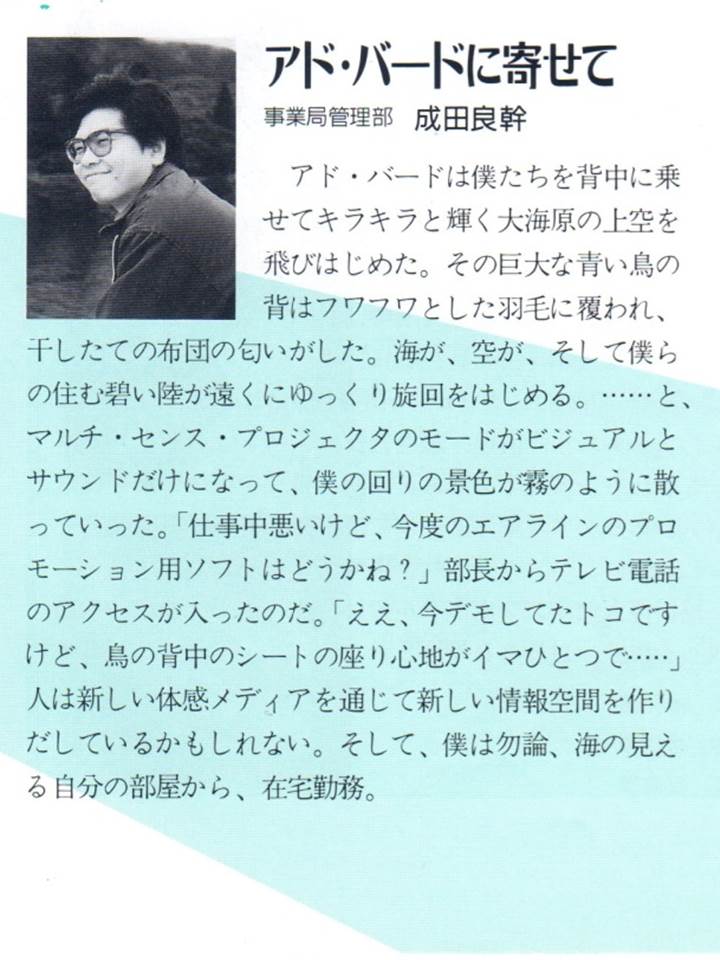 アド・バードに寄せて
事業局管理部 成田良幹
アド・バードは僕たちを背中に乗
せてキラキラと輝く大海原の上空を
飛びはじめた。その巨大な青い鳥の
背はフワフワとした羽毛に覆われ、
干したての布団の匂いがした。海が、空が、そして僕ら
の住む碧い陸が遠くにゆっくり旋回をはじめる。……と、
マルチ・センス・プロジェクタのモードがビジュアルと
サウンドだけになって、僕の回りの景色が霧のように散
っていった。「仕事中悪いけど、今度のエアラインのプロ
モーション用ソフトはどうかね？」部長からテレビ電話
のアクセスが入ったのだ。「ええ、今デモしてたトコです
けど、鳥の背中のシートの座り心地がイマひとつで……」
人は新しい体感メディアを通じて新しい情報空間を作り
だしているかもしれない。そして、僕は勿論、海の見え
る自分の部屋から、在宅勤務。